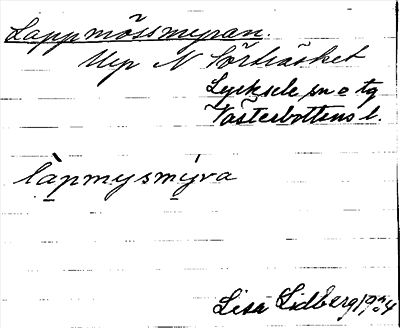 Lappmössmyran.
Myr N Sörträsket
Lycksele sn o tg
Västerbottens l.
làpmysmýra
Lisa Lidberg 1924